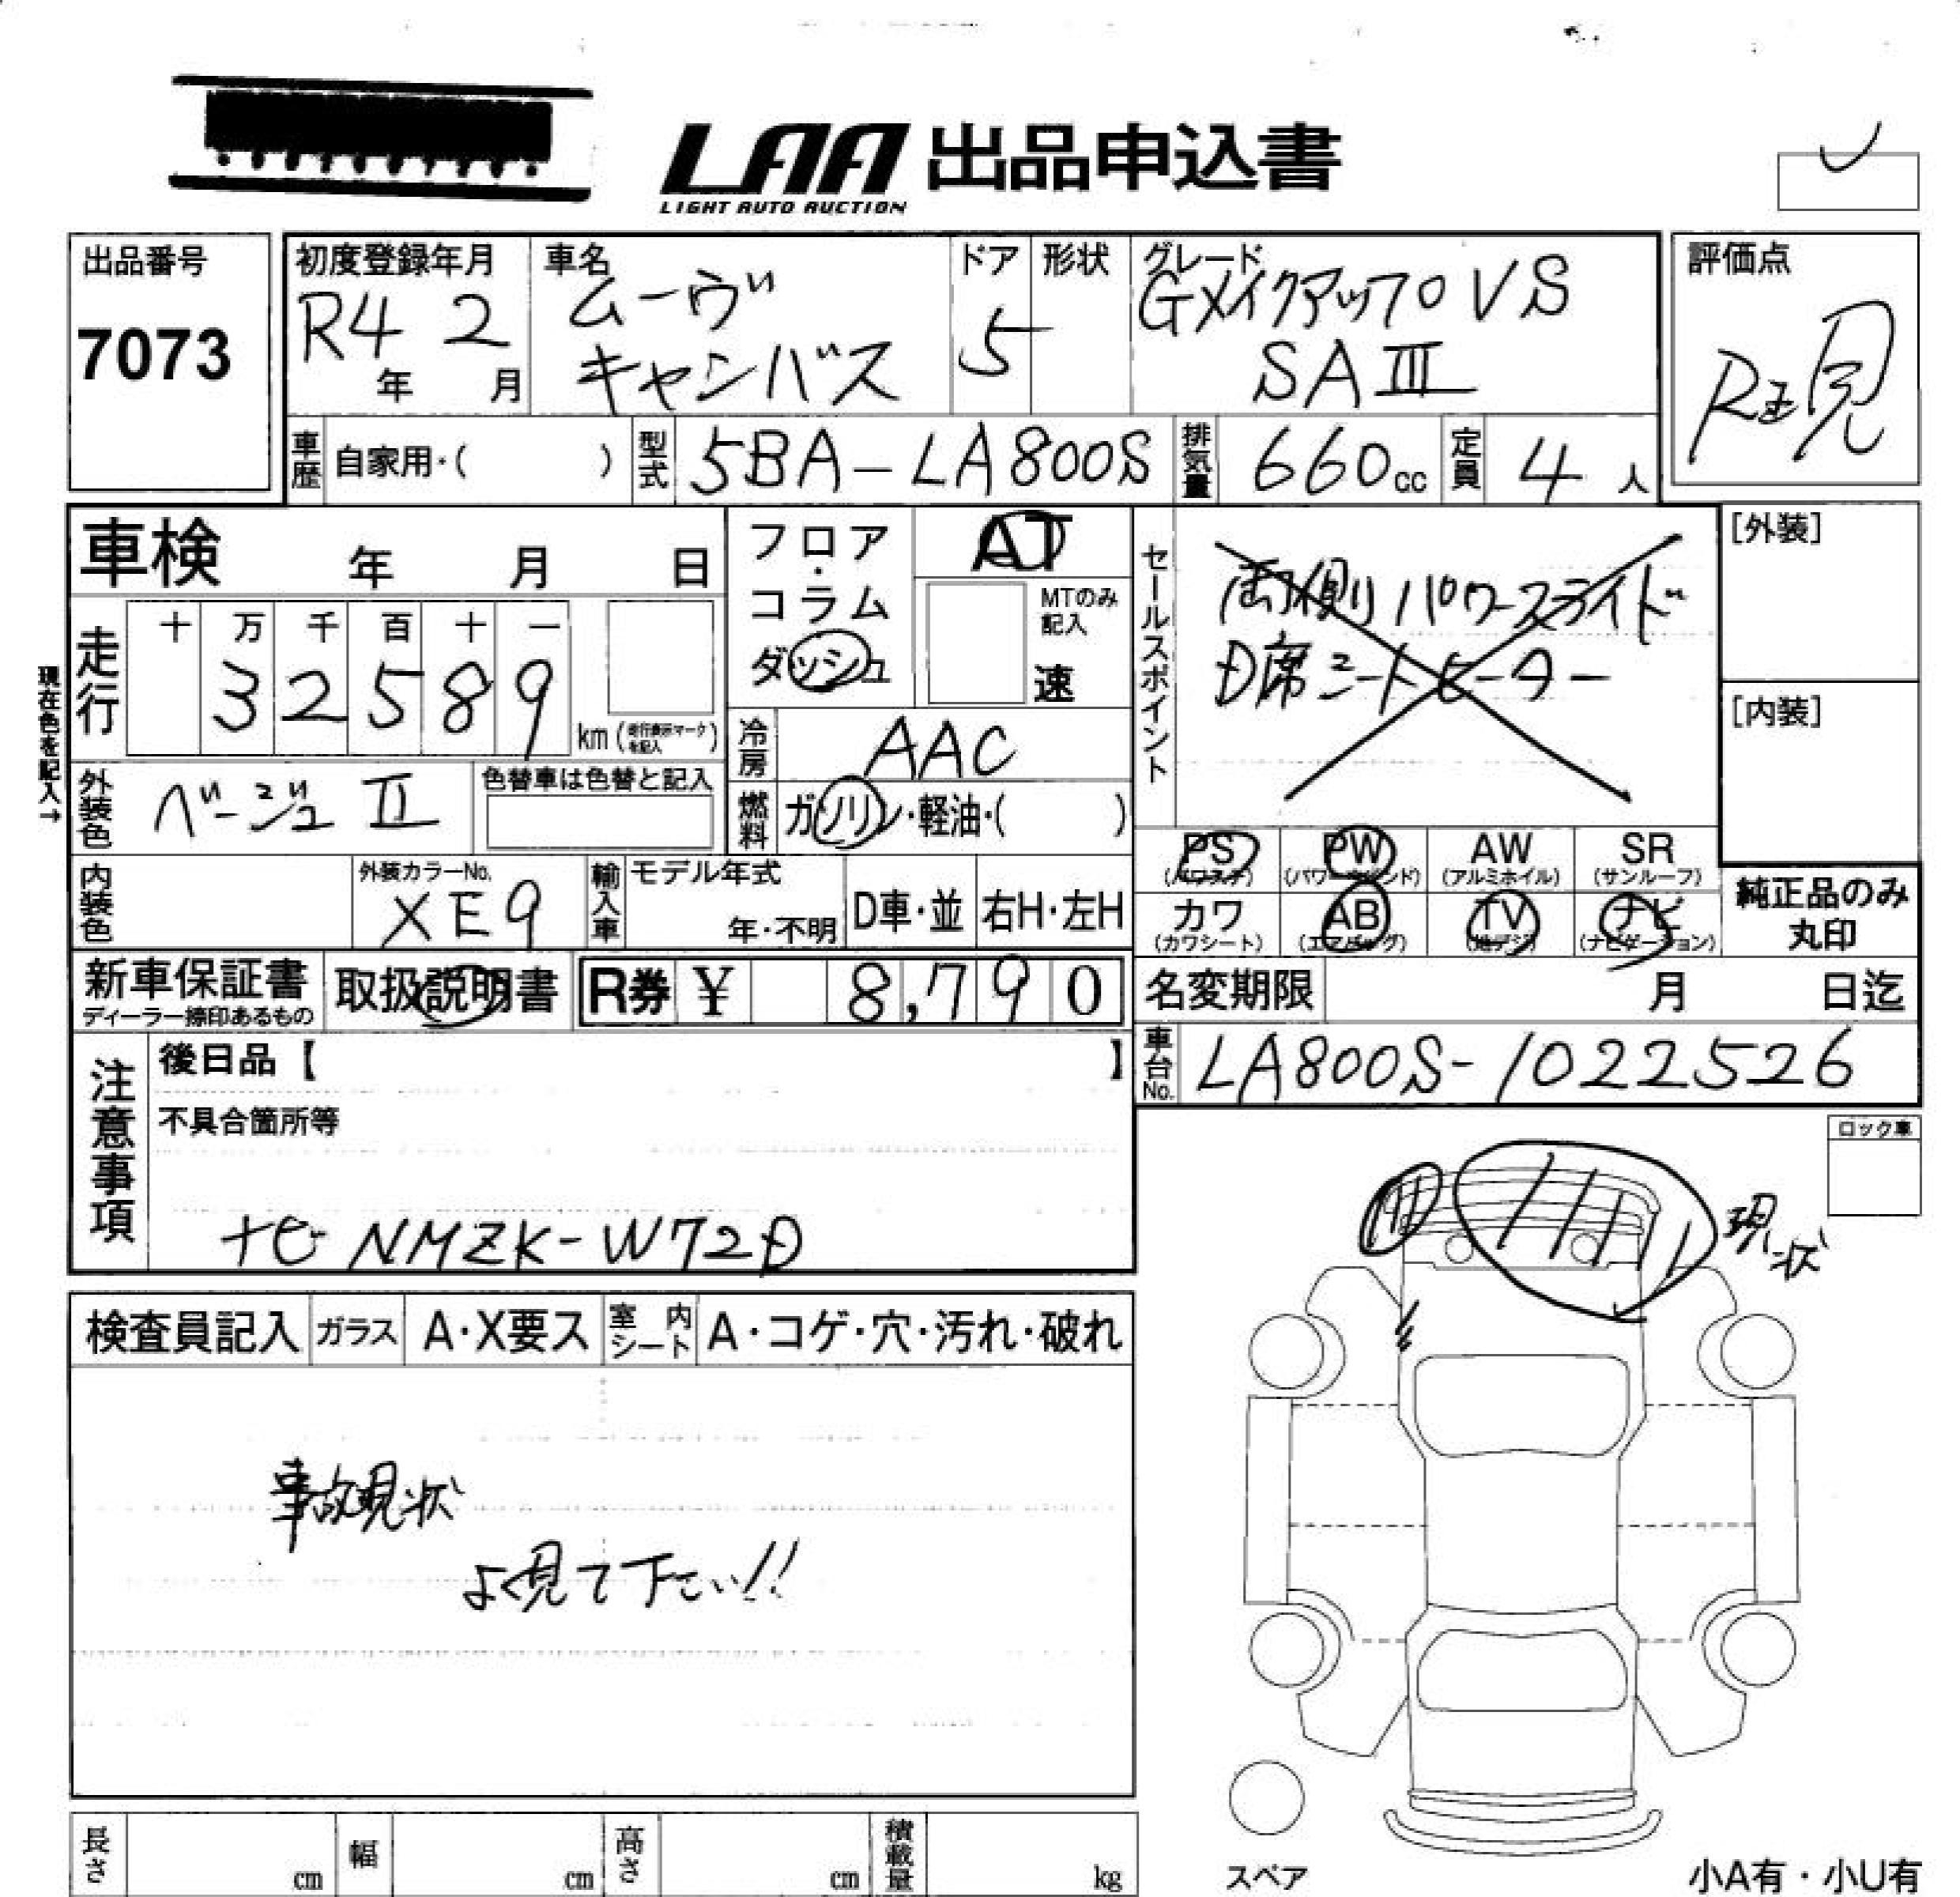 LAA 出品申込書
LIGHT AUTO AUCTION
出品番号
7073
初度登録年月
R4 2
年 月
車名
ムーヴ
キャンバス
ドア
5
形状
グレード
Gメイクアップ VS
SAⅢ
評価点
R 見
車歴 自家用・( )
型式 5BA-LA800S
排気量 660cc
定員 4人
車検 年 月 日
現在色を記入→
走行
十 万 千 百 十 一
3 2 5 8 9
km( を記入 )
フロア・コラム
ダッシュ
AT
MTのみ
記入
速
セールスポイント
両側パワースライド
D席シートヒーター
[外装]
[内装]
外装色 ベージュⅡ
色替車は色替と記入
冷房 AAC
燃料 ガソリン・軽油・( )
内装色
外装カラーNo.
XE9
輸入車
モデル年式
年・不明
D車・並
右H・左H
PS PW AW SR
(パワステ) (パワーウインド) (アルミホイル) (サンルーフ)
カワ AB TV ナビ
(カワシート) (エアバッグ) (地デジ) (ナビゲーション)
純正品のみ
丸印
新車保証書
ディーラー捺印あるもの
取扱説明書
R券 ¥ 8,790
名変期限 月 日迄
車台No. LA800S-1022526
注意事項
後日品【 】
不具合箇所等
ナビ NMZK-W72D
ロック車
現状
検査員記入 ガラス A・X要ス 室内シート A・コゲ・穴・汚れ・破れ
事故現状
よく見て下さい!!
長さ cm 幅 cm 高さ cm 積載量 kg
スペア
小A有・小U有